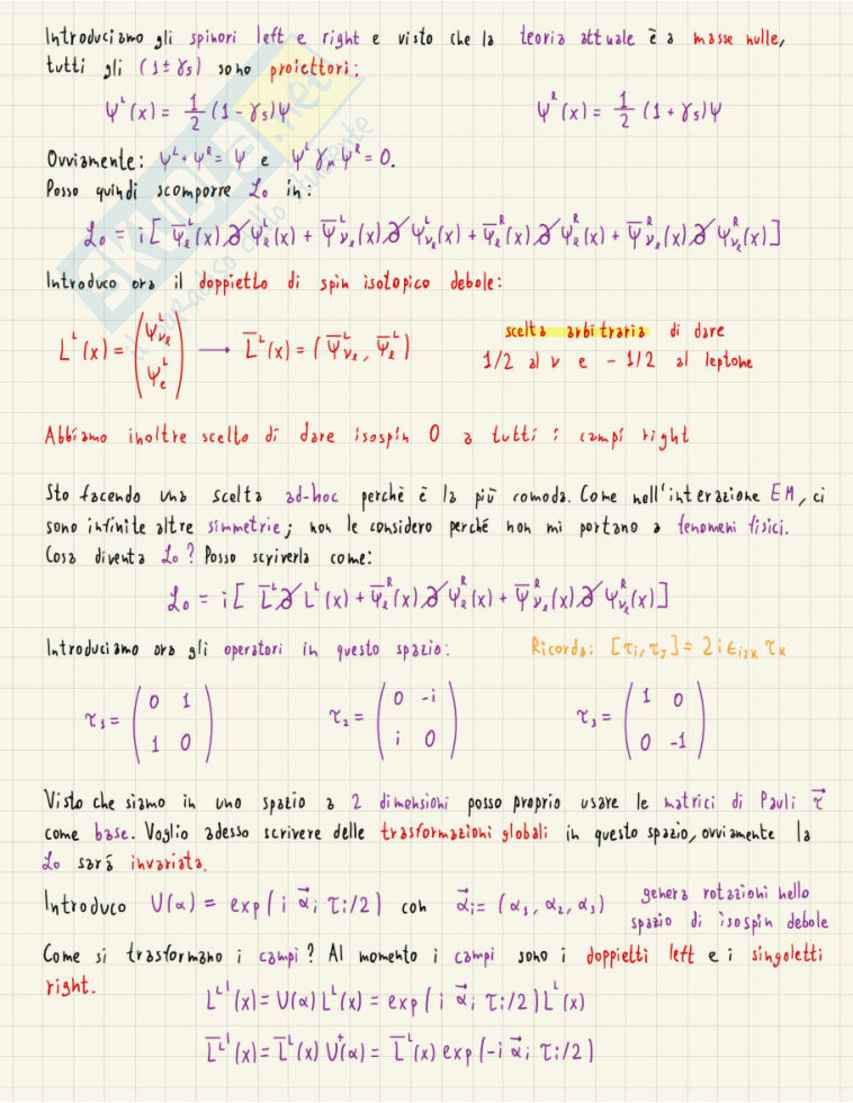 Introduciamo gli spinori left e right e visto che la teoria attuale è a masse nulle,
tutti gli (1±γ₅) sono proiettori:
ψᴸ(x) = 1/2 (1-γ₅)ψ ψᴿ(x) = 1/2 (1+γ₅)ψ
Ovviamente: ψᴸ+ψᴿ = ψ e ψᴸγ_μψᴿ = 0.
Posso quindi scomporre ℒ₀ in:
ℒ₀ = i[ψ̄ₗᴸ(x)∂̸ψₗᴸ(x) + ψ̄ᴸ_νₗ(x)∂̸ψᴸ_νₗ(x) + ψ̄ₗᴿ(x)∂̸ψₗᴿ(x) + ψ̄ᴿ_νₗ(x)∂̸ψᴿ_νₗ(x)]
Introduco ora il doppietto di spin isotopico debole:
Lᴸ(x) = (ψᴸ_νₗ ψᴸ_e) → L̄ᴸ(x) = (ψ̄ᴸ_νₗ, ψ̄ₗᴸ)
scelta arbitraria di dare
1/2 al ν e -1/2 al leptone
Abbiamo inoltre scelto di dare isospin 0 a tutti i campi right
Sto facendo una scelta ad-hoc perchè è la più comoda. Come nell'interazione EM, ci
sono infinite altre simmetrie; non le considero perché non mi portano a fenomeni fisici.
Cosa diventa ℒ₀? Posso scriverla come:
ℒ₀ = i[L̄ᴸ∂̸Lᴸ(x) + ψ̄ₗᴿ(x)∂̸ψₗᴿ(x) + ψ̄ᴿ_νₗ(x)∂̸ψᴿ_νₗ(x)]
Introduciamo ora gli operatori in questo spazio: Ricorda: [τᵢ,τⱼ] = 2iεᵢⱼₖτₖ
τ₁ = (0 1 1 0) τ₂ = (0 -i i 0) τ₃ = (1 0 0 -1)
Visto che siamo in uno spazio a 2 dimensioni posso proprio usare le matrici di Pauli τ⃗
come base. Voglio adesso scrivere delle trasformazioni globali in questo spazio, ovviamente la
ℒ₀ sará invariata.
Introduco U(α) = exp(i α⃗ᵢ τᵢ/2) con α⃗ᵢ = (α₁, α₂, α₃) genera rotazioni nello
spazio di isospin debole
Come si trasformano i campi? Al momento i campi sono i doppietti left e i singoletti
right.
Lᴸ'(x) = U(α)Lᴸ(x) = exp(i α⃗ᵢ τᵢ/2)Lᴸ(x)
L̄ᴸ'(x) = L̄ᴸ(x)U†(α) = L̄ᴸ(x)exp(-i α⃗ᵢ τᵢ/2)